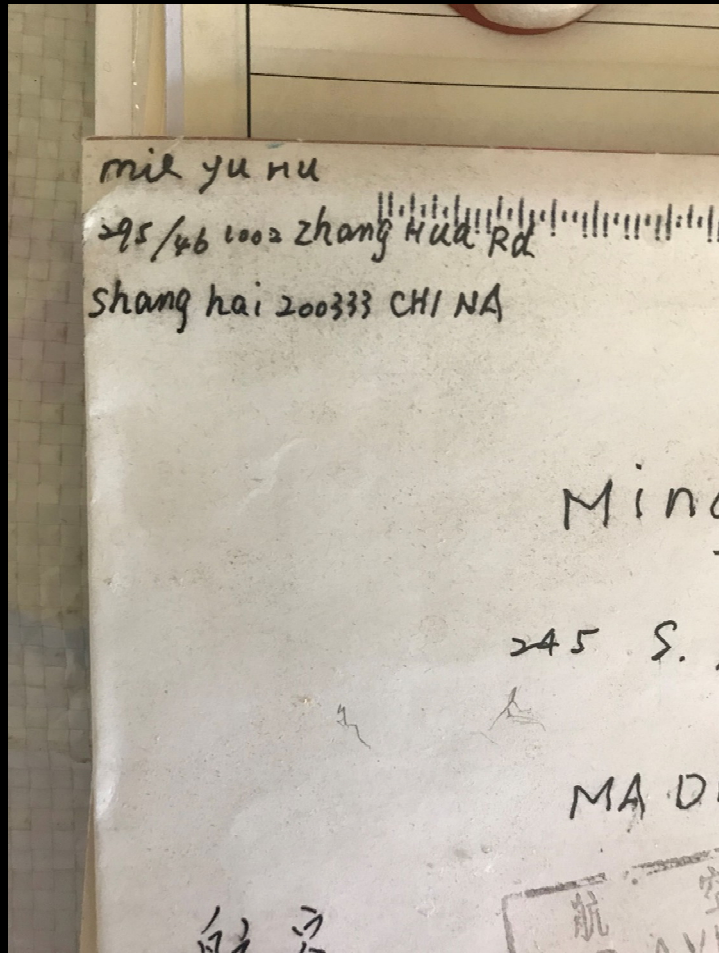 mie yu Hu
295/46 1002 Zhang Hua Rd
Shang hai 200333 CHINA
Min
245 S.
MAD
航空
航空